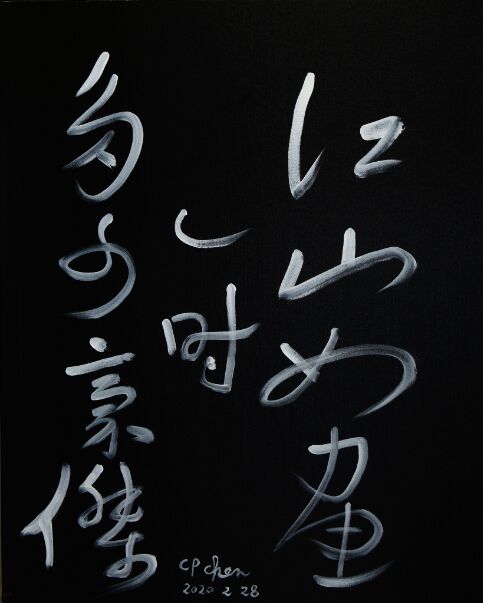 江山如画
一时
多少豪傑
CP Chen
2020 2 28